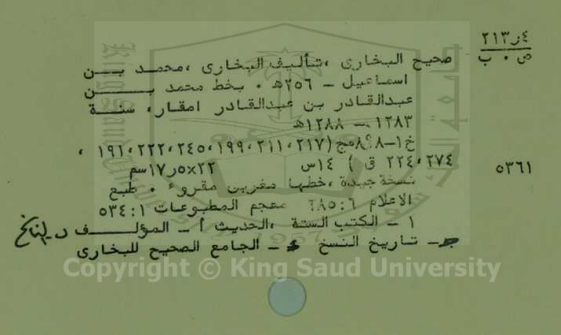 ٢١٣٫٤
ص ٠ ب
صحيح البخارى ،تأليف البخارى ،محمد بـــن
اسماعيل - ٢٥٦هـ ٠ بخط محمد بــــــن
عبدالقادر بن عبدالقادر امقار، سنـــة
١٢٨٣ - ١٢٨٨هـ
خ١-٨ ٨مج (٢١٧، ٢١١، ١٩٩، ٢٤٥، ٢٢٢، ١٩١،
٢٧٤، ٢٢٤ ق ) ١٤س ٢٢×١٧٫٥سم
٥٣٦١
نسخة جيدة ،خطها مغربى مقروء ٠ طبع
الاعلام ٦: معجم المطبوعات ١: ٥٣٤
١ - الكتب الستة ،الحديث أ - المؤلـــف ب- الناسخ
جـ- تاريخ النسخ - الجامع الصحيح للبخارى
Copyright © King Saud University